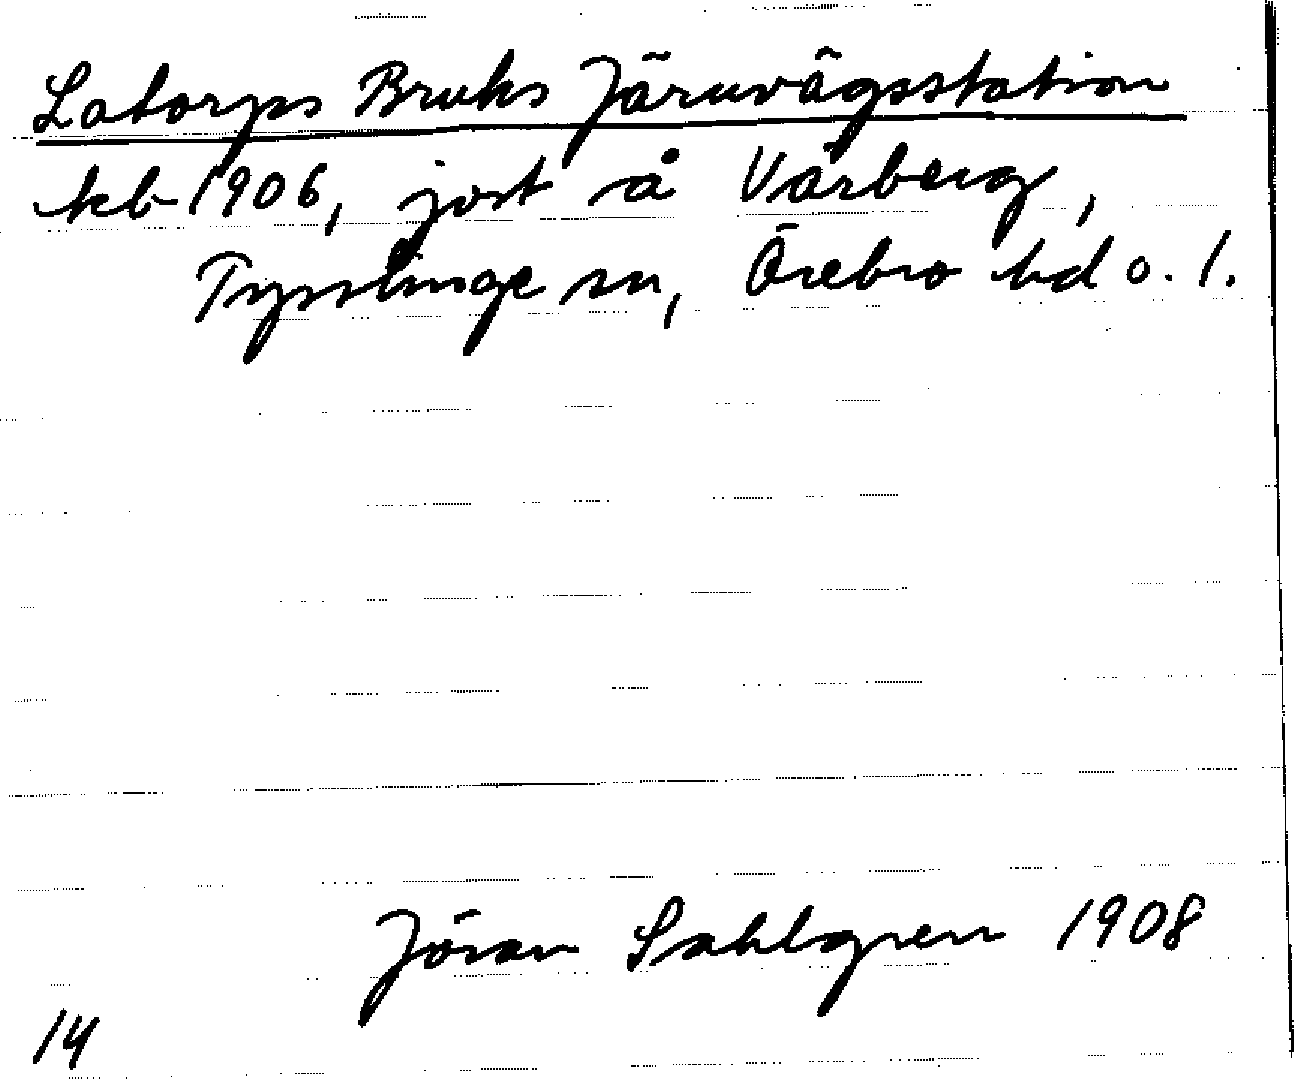 Latorps Bruks Järnvägsstation
kb 1906, jost å Vårberg,
Tysslinge sn, Örebro hd o. l.
Jöran Sahlgren 1908
14